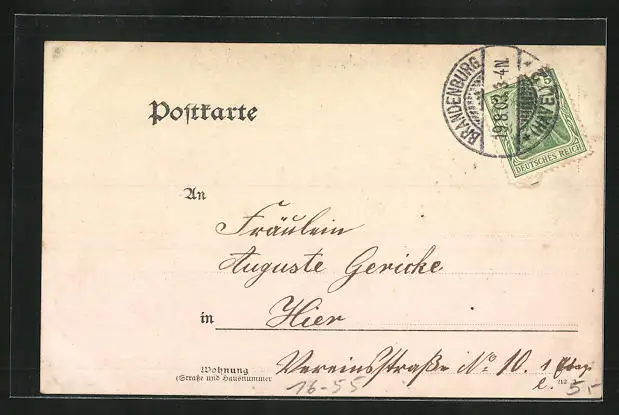 Postkarte
BRANDENBURG
19.8.03. 3-4N.
* (HAVEL) *
5
DEUTSCHES REICH
An
Fräulein
Auguste Gericke
in Hier
Wohnung
(Straße und Hausnummer
Vereinsstraße No 10. 1 Etag.
l.
16-55
5,-